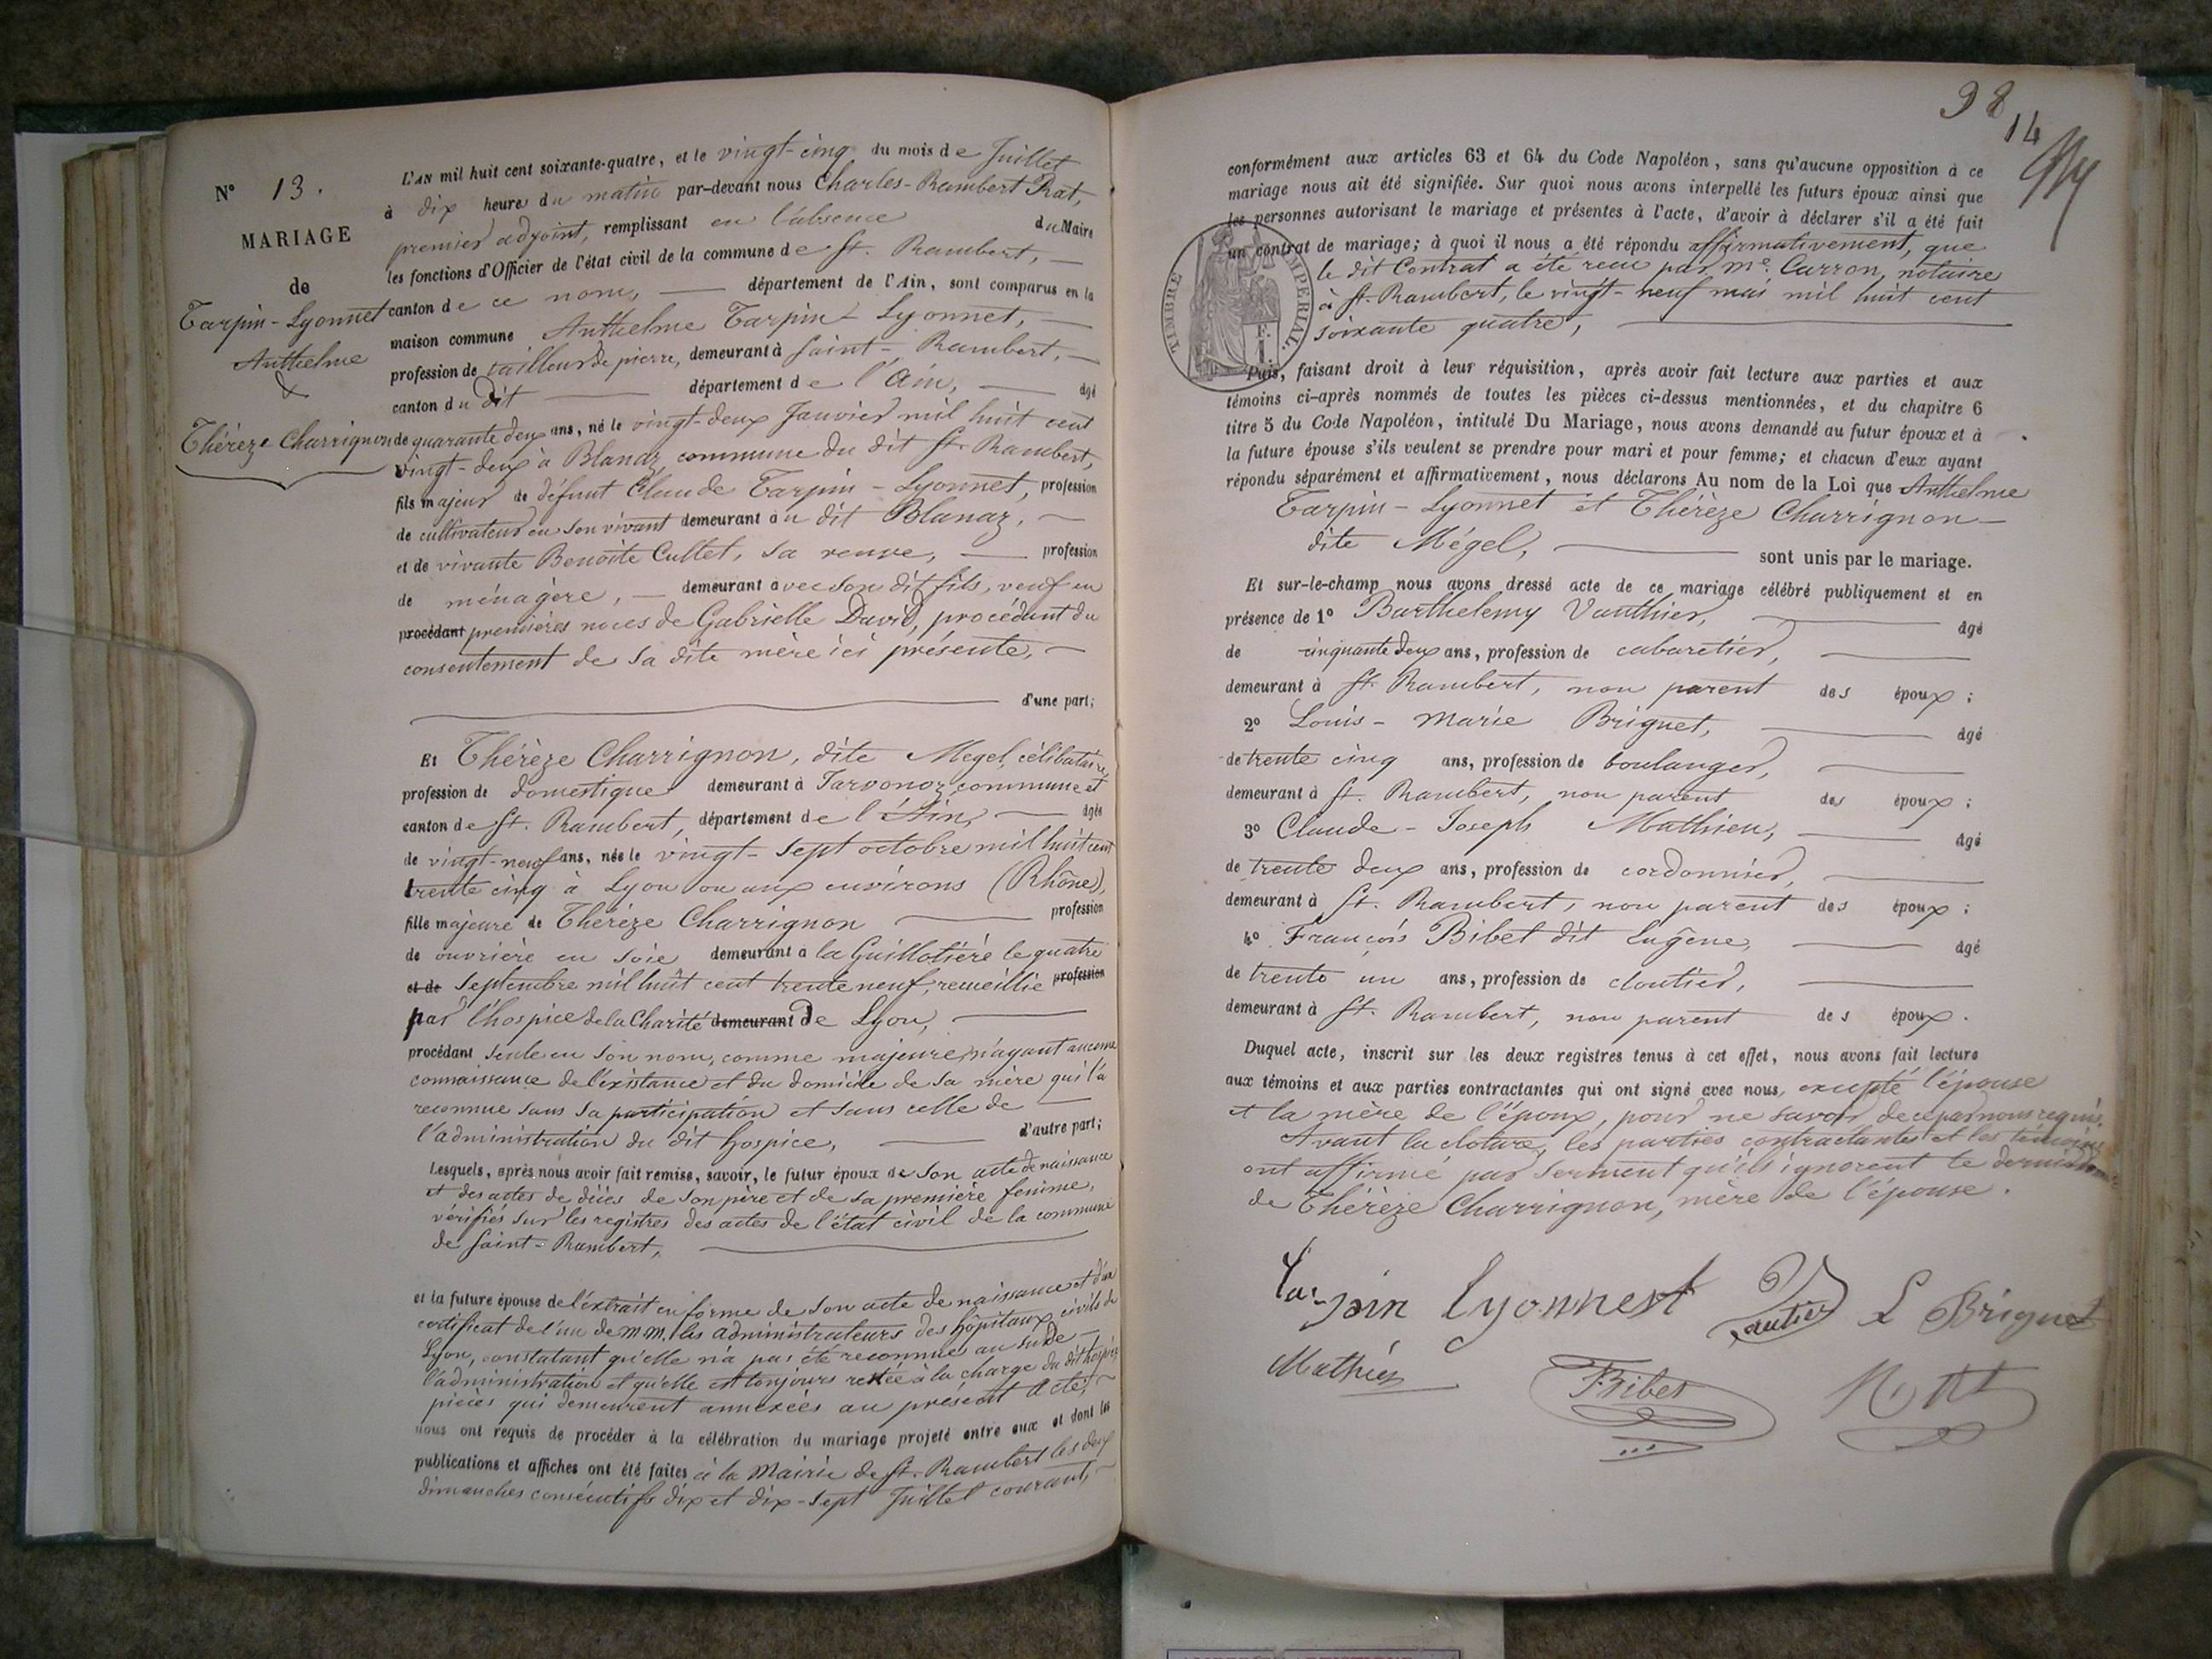 N° 13.
MARIAGE
de
Tarpin-Lyonnet
Anthelme
&
Thérèze Charrignon
L'AN mil huit cent soixante-quatre, et le vingt-cinq du mois de Juillet
à dix heures du matin par-devant nous Charles-Rambert Rat,
premier adjoint, remplissant en l'absence du Maire
les fonctions d'Officier de l'état civil de la commune de St. Rambert, —
canton de ce nom, — département de l'Ain, sont comparus en la
maison commune Anthelme Tarpin-Lyonnet, —
profession de tailleur de pierre, demeurant à Saint-Rambert, —
canton du dit — département de l'Ain, — âgé
de quarante deux ans, né le vingt-deux Janvier mil huit cent
vingt-deux à Blanaz, commune du dit St. Rambert,
fils majeur de défunt Claude Tarpin-Lyonnet, profession
de cultivateur en son vivant demeurant au dit Blanaz, —
et de vivante Benoite Cullet, sa veuve, — profession
de ménagère, — demeurant avec son dit fils, veuf en
procédant premières noces de Gabrielle David, procédant du
consentement de sa dite mère ici présente, —
d'une part;
Et Thérèze Charrignon, dite Megel, célibataire,
profession de domestique demeurant à Javornoz, commune et
canton de St. Rambert, département de l'Ain, — âgée
de vingt-neuf ans, née le vingt-sept octobre mil huit cent
trente cinq à Lyon ou aux environs (Rhône),
fille majeure de Thérèze Charrignon — profession
de ouvrière en soie demeurant à la Guillotière le quatre
et de Septembre mil huit cent trente neuf, recueillie profession
par l'hospice de la Charité demeurant de Lyon, —
procédant seule en son nom, comme majeure, n'ayant aucune
connaissance de l'existance et du domicile de sa mère qui l'a
reconnue sans sa participation et sans celle de —
l'administration du dit hospice, — d'autre part;
Lesquels, après nous avoir fait remise, savoir, le futur époux de son acte de naissance
et des actes de décès de son père et de sa première femme,
vérifiés sur les registres des actes de l'état civil de la commune
de Saint-Rambert, —
et la future épouse de l'extrait en forme de son acte de naissance et d'un
certificat de l'un de MM. les administrateurs des hôpitaux civils de
Lyon, constatant qu'elle n'a pas été reconnue au su de —
l'administration et qu'elle est toujours restée à la charge du dit hospice,
pièces qui demeurent annexées au présent acte, —
nous ont requis de procéder à la célébration du mariage projeté entre eux et dont les
publications et affiches ont été faites à la Mairie de St. Rambert les deux
dimanches consécutifs dix et dix-sept Juillet courant, —
98
14
conformément aux articles 63 et 64 du Code Napoléon, sans qu'aucune opposition à ce
mariage nous ait été signifiée. Sur quoi nous avons interpellé les futurs époux ainsi que
les personnes autorisant le mariage et présentes à l'acte, d'avoir à déclarer s'il a été fait
un contrat de mariage; à quoi il nous a été répondu affirmativement, que
le dit Contrat a été recu par Me. Carron, notaire
à St. Rambert, le vingt-neuf mai mil huit cent
soixante quatre, —
TIMBRE IMPERIAL.
F.
1
Puis, faisant droit à leur réquisition, après avoir fait lecture aux parties et aux
témoins ci-après nommés de toutes les pièces ci-dessus mentionnées, et du chapitre 6
titre 5 du Code Napoléon, intitulé Du Mariage, nous avons demandé au futur époux et à
la future épouse s'ils veulent se prendre pour mari et pour femme; et chacun d'eux ayant
répondu séparément et affirmativement, nous déclarons Au nom de la Loi que Anthelme
Tarpin-Lyonnet et Thérèze Charrignon —
dite Mégel, — sont unis par le mariage.
Et sur-le-champ nous avons dressé acte de ce mariage célébré publiquement et en
présence de 1° Barthelemy Vauthier, — âgé
de cinquante deux ans, profession de cabaretier, —
demeurant à St. Rambert, non parent des époux;
2° Louis-Marie Briguet, — âgé
de trente cinq ans, profession de boulanger, —
demeurant à St. Rambert, non parent des époux;
3° Claude-Joseph Mathieu, — âgé
de trente deux ans, profession de cordonnier, —
demeurant à St. Rambert, non parent des époux;
4° François Bibet dit Eugène, — âgé
de trente un ans, profession de cloutier, —
demeurant à St. Rambert, non parent des époux.
Duquel acte, inscrit sur les deux registres tenus à cet effet, nous avons fait lecture
aux témoins et aux parties contractantes qui ont signé avec nous, excepté l'épouse
et la mère de l'époux, pour ne savoir, de ce par nous requis.
Avant la cloture, les parties contractantes et les témoins
ont affirmé par serment qu'ils ignorent le dernier
de Thérèze Charrignon, mère de l'épouse.
Tarpin Lyonnest Vautier L Briguet
Mathieu Bibet Rat